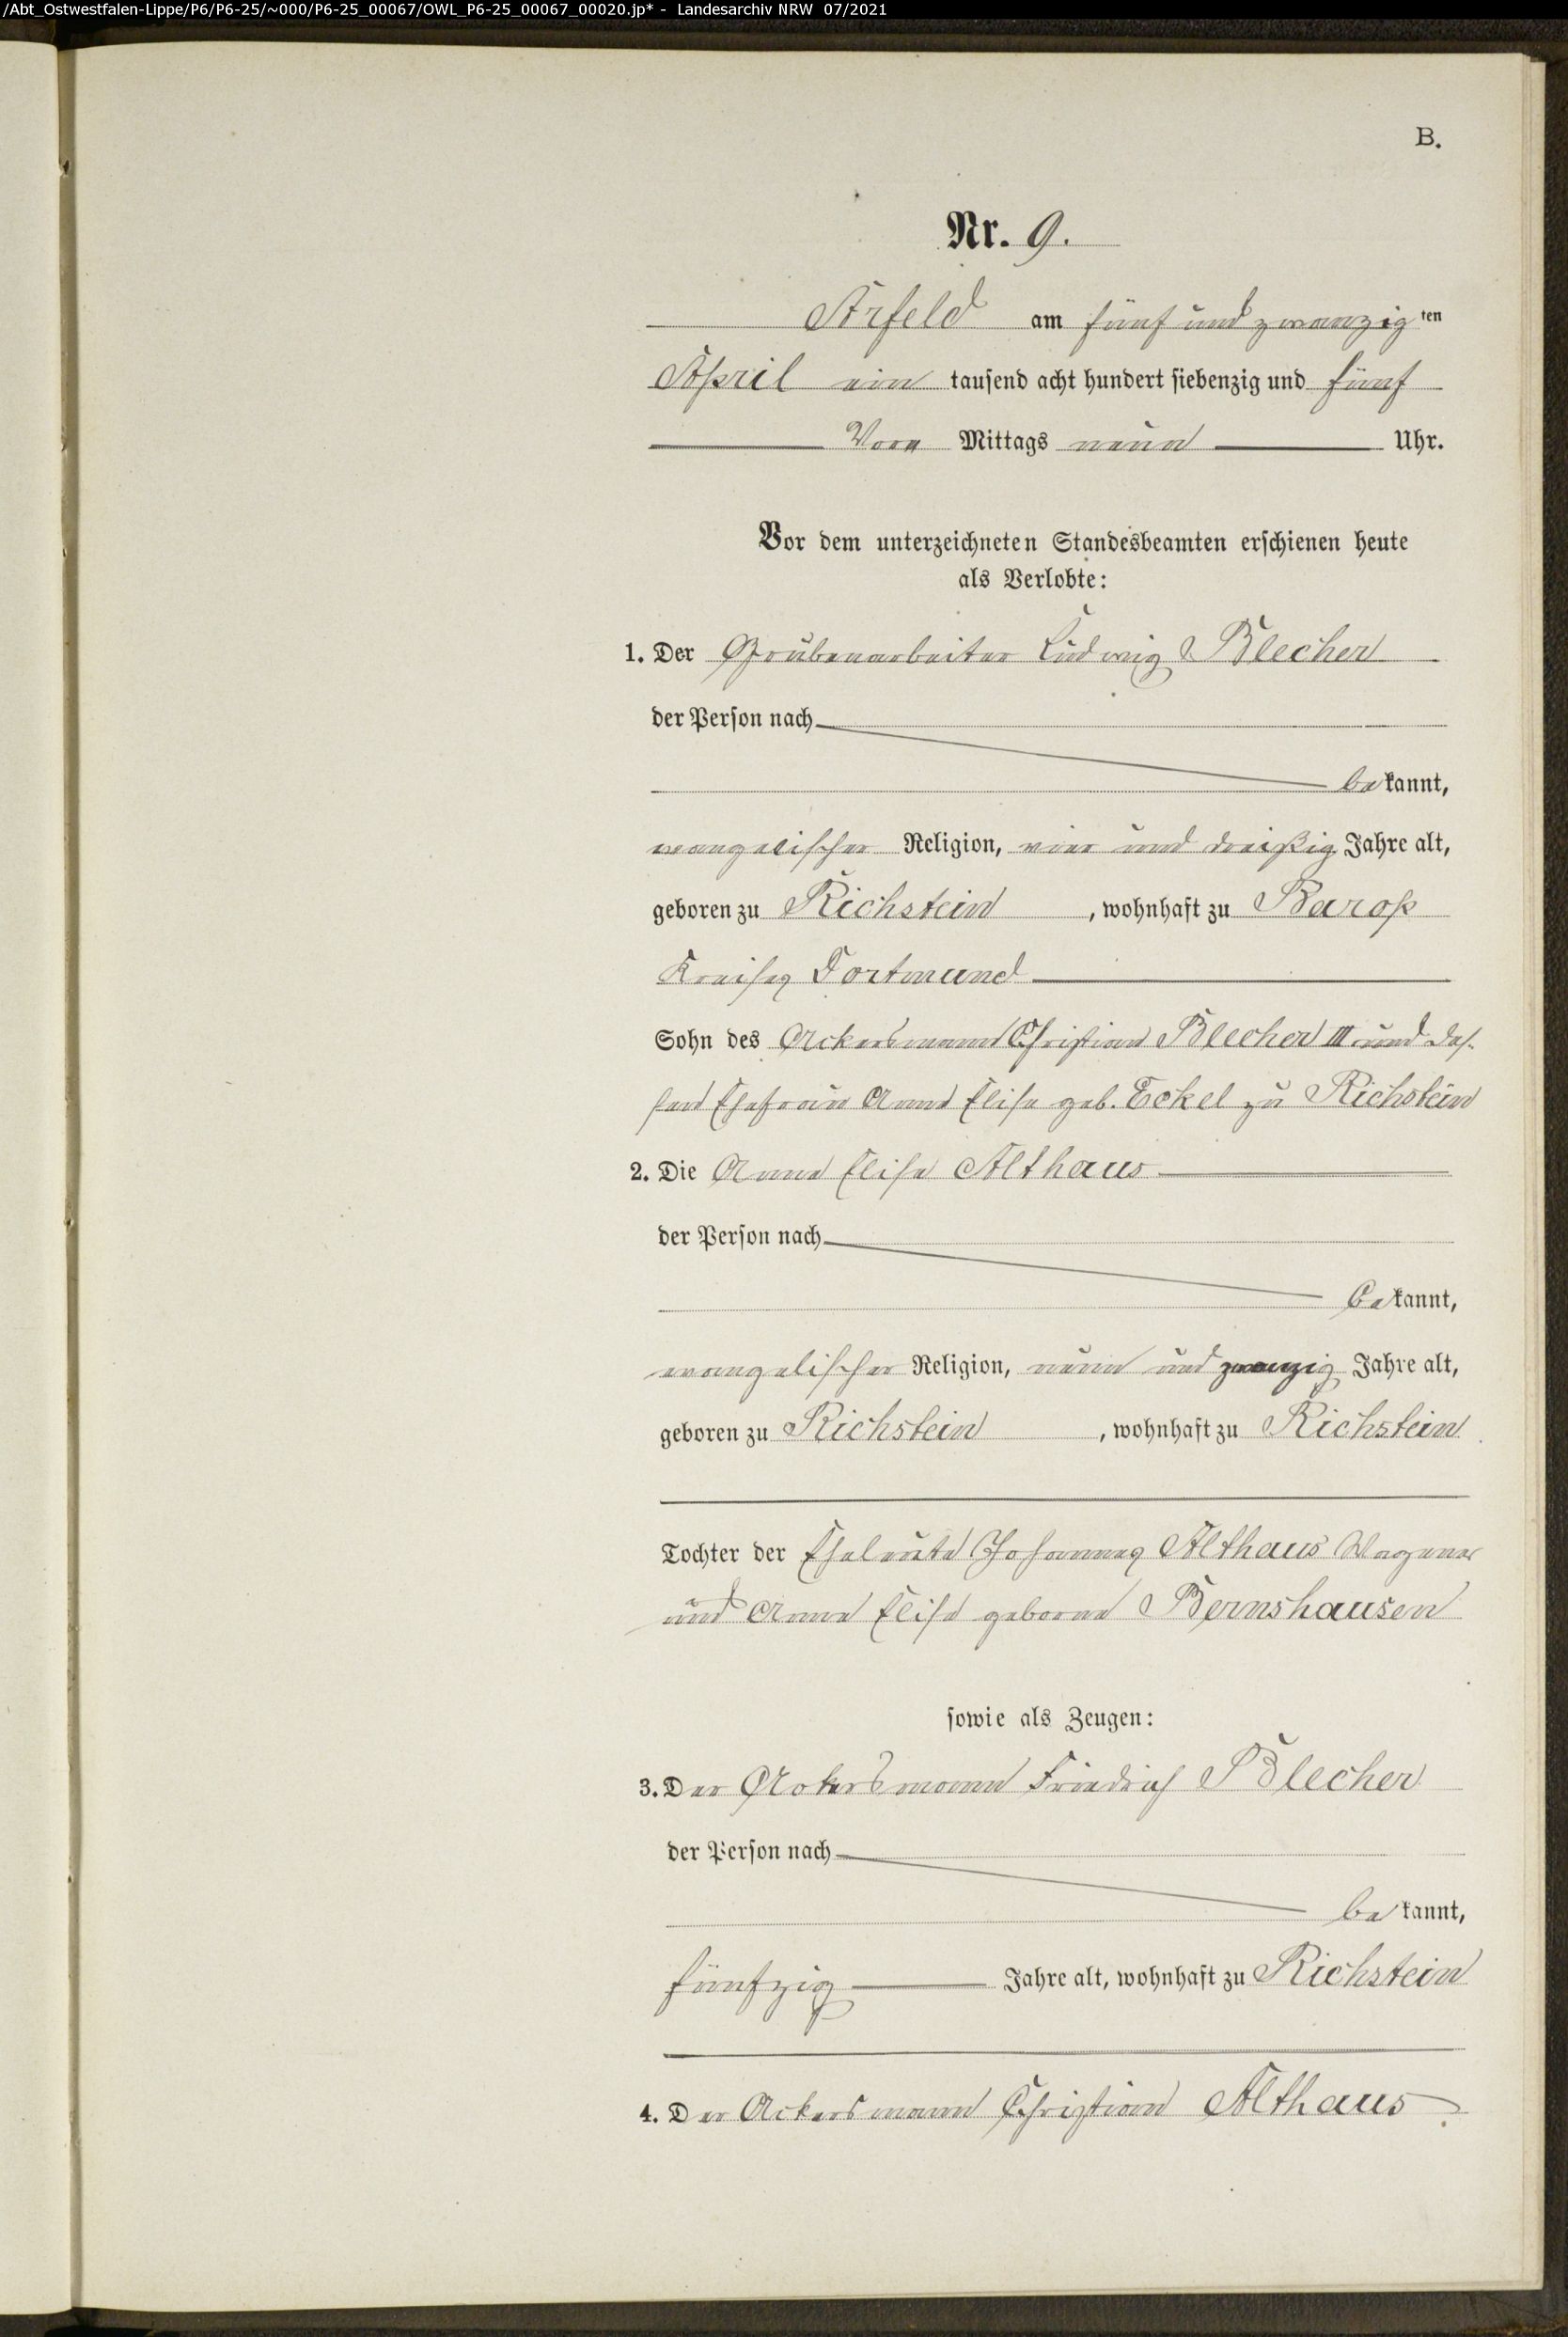 /Abt_Ostwestfalen-Lippe/P6/P6-25/~000/P6-25_00067/OWL_P6-25_00067_00020.jp* - Landesarchiv NRW 07/2021
B.
Nr. 9.
Arfeld am fünf und zwanzig ten
April ein tausend acht hundert siebenzig und fünf
Vor Mittags neun Uhr.
Vor dem unterzeichneten Standesbeamten erschienen heute
als Verlobte:
1. Der Grubenarbeiter Ludwig Blecher
der Person nach
bekannt,
evangelischer Religion, vier und dreißig Jahre alt,
geboren zu Richstein, wohnhaft zu Barop
Kreises Dortmund
Sohn des Ackersmann Christian Blecher III und des-
sen Ehefrau Anna Elise geb. Eckel zu Richstein
2. Die Anna Elise Althaus
der Person nach
bekannt,
evangelischer Religion, neun und zwanzig Jahre alt,
geboren zu Richstein, wohnhaft zu Richstein
Tochter der Eheleute Johannes Althaus Wagener
und Anna Elise geborne Bernshausen
sowie als Zeugen:
3. Der Ackersmann Friedrich Blecher
der Person nach
bekannt,
fünfzig Jahre alt, wohnhaft zu Richstein
4. Der Ackersmann Christian Althaus